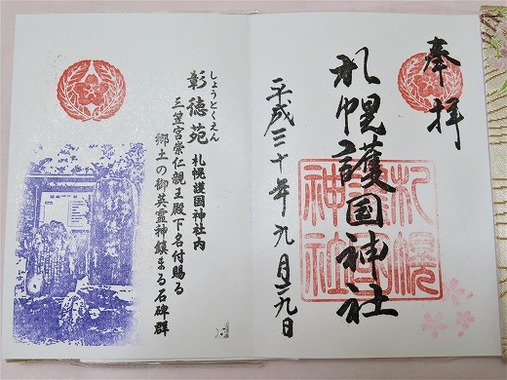 奉拝
札幌護国神社
平成三十年九月二九日
札幌護国神社
しょうとくえん
彰徳苑 札幌護国神社内
三笠宮崇仁親王殿下名付賜る
郷土の御英霊神鎮まる石碑群